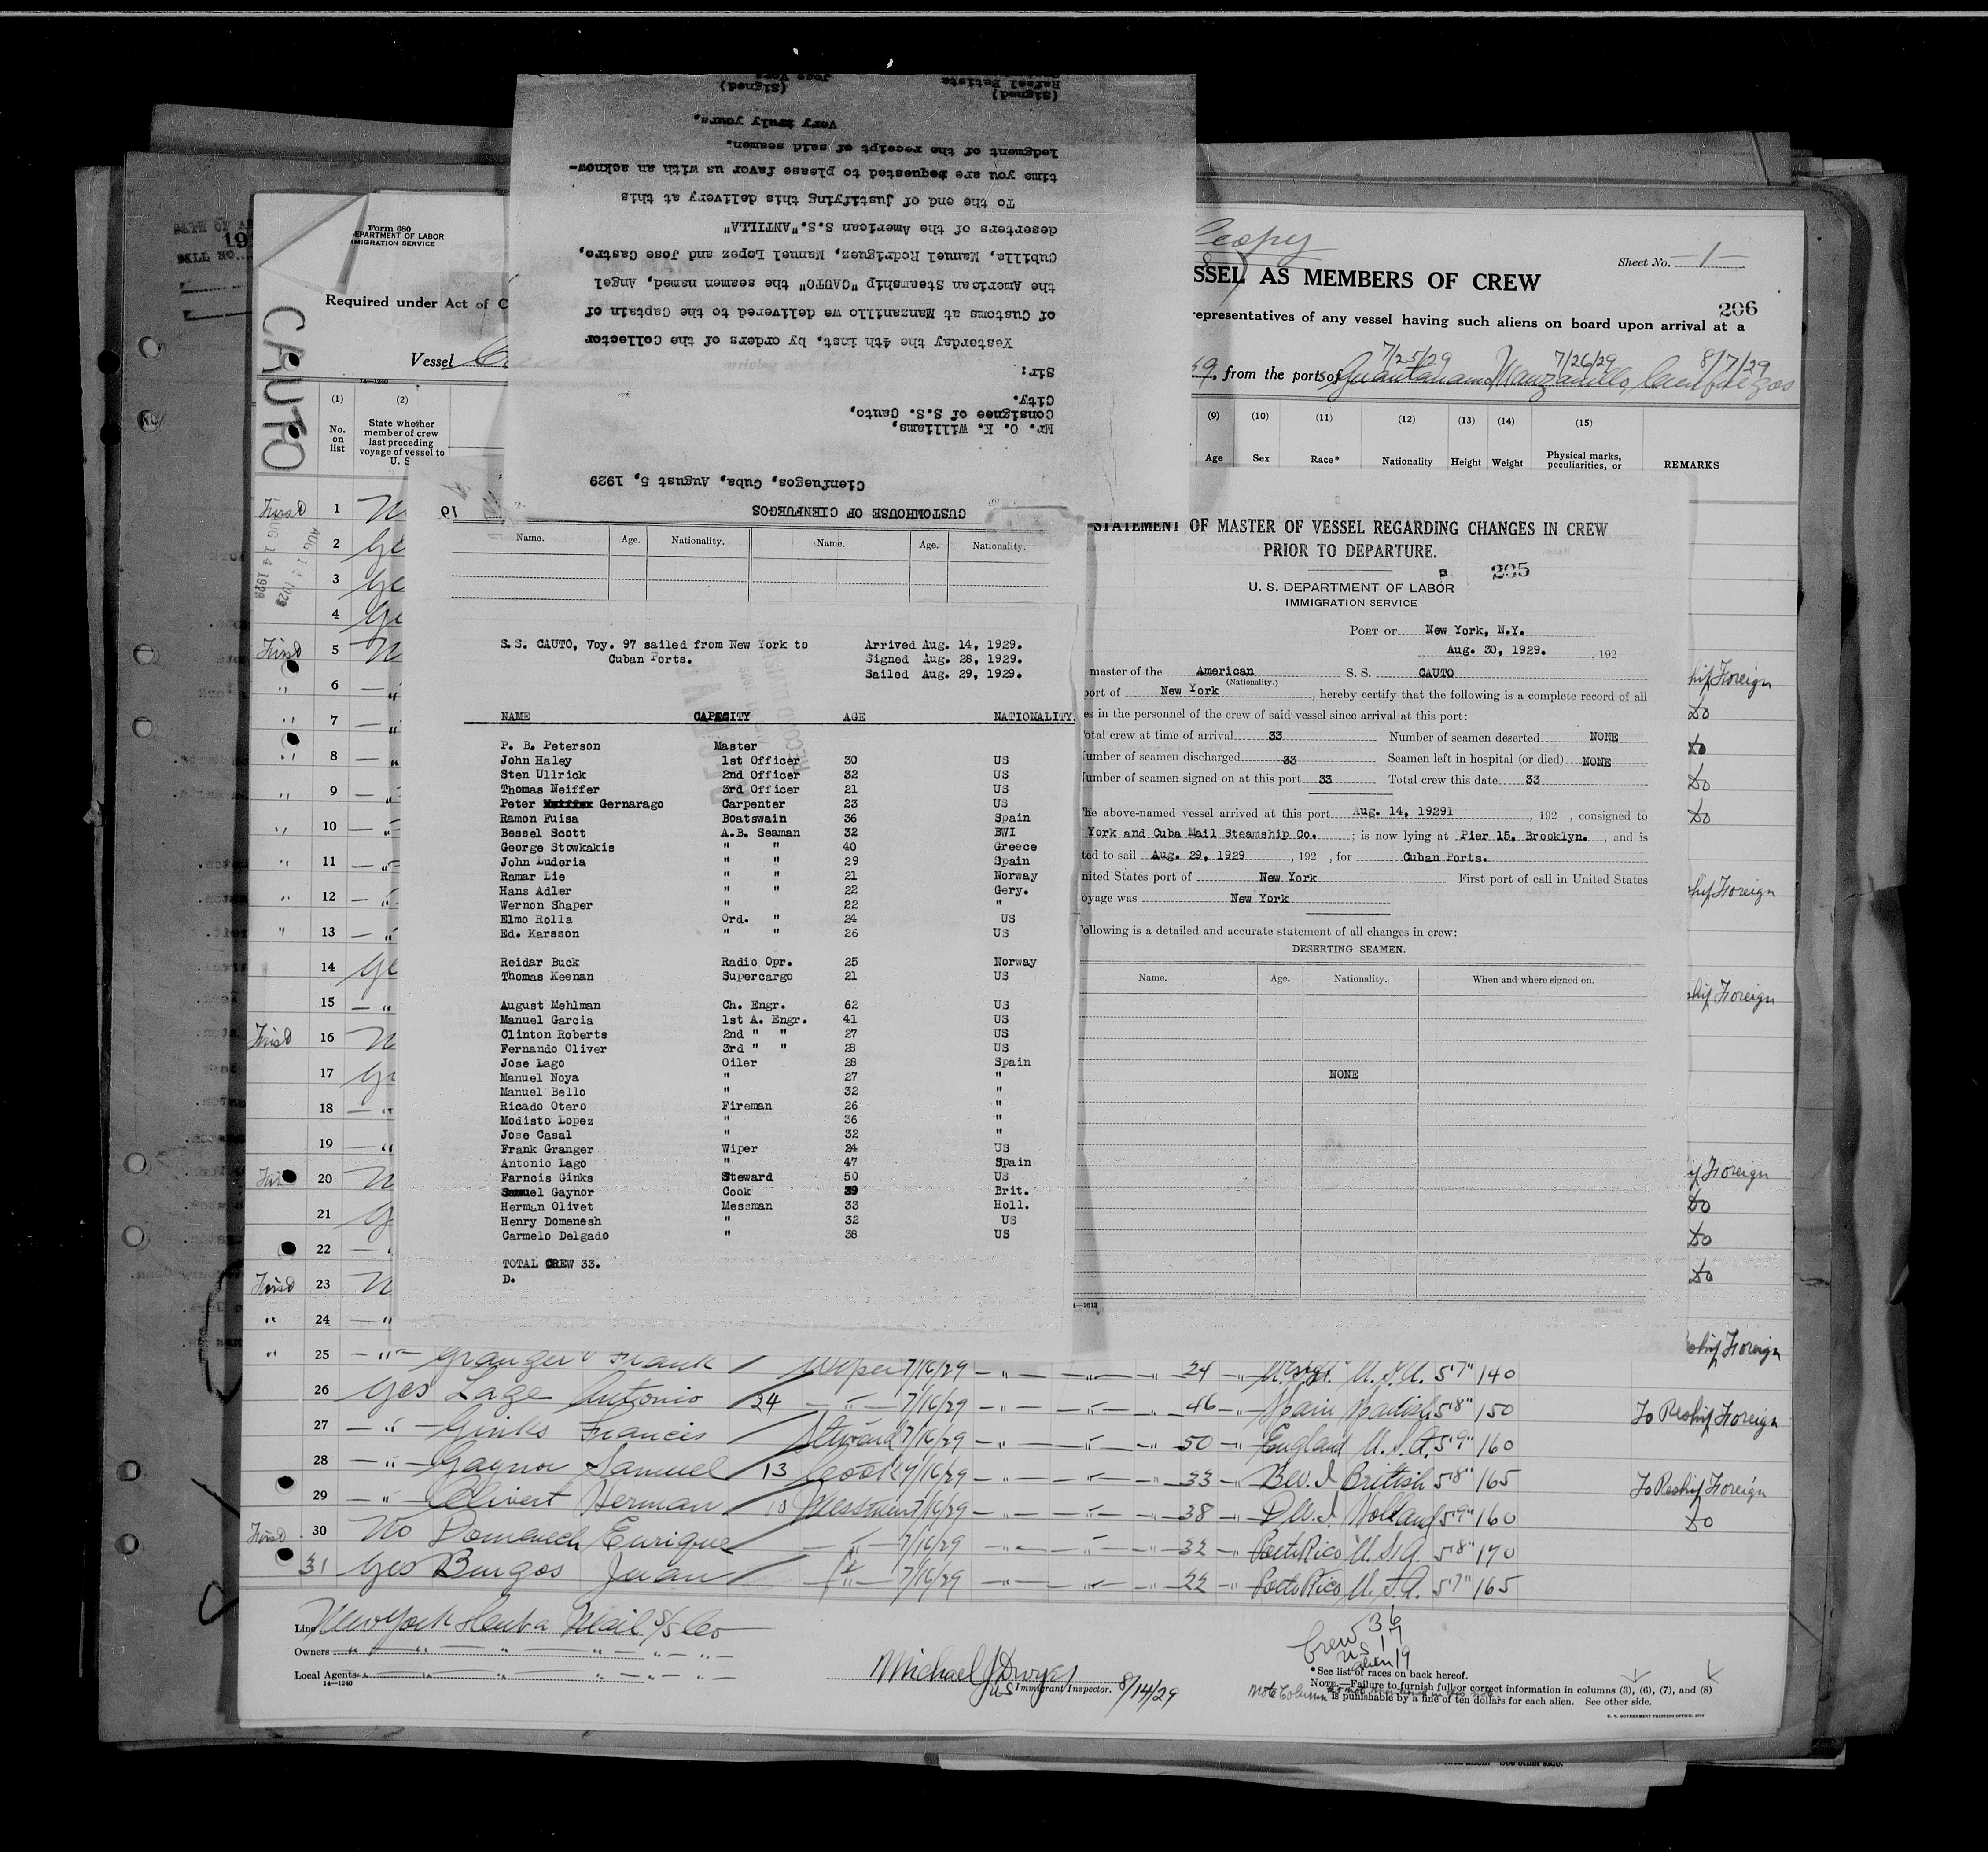 CUSTOMHOUSE OF CIENFUEGOS
Cienfuegos, Cuba, August 5, 1929
Mr. O. K. Williams,
Consignee of S.S. Cauto,
City.
Sir:
Yesterday the 4th inst. by orders of the Collector
of Customs at Manzanillo we delivered to the Captain of
the American Steamship "CAUTO" the seamen named, Angel
Cubilla, Manuel Rodriguez, Manuel Lopez and Jose Castro,
deserters of the American S.S."ANTILLA"
To the end of justifying this delivery at this
time you are requested to please favor us with an acknow-
ledgment of the receipt of said seamen.
Very truly yours,
(Signed) (Signed)
Rafael Batista Jose Vera
Form 680
DEPARTMENT OF LABOR
IMMIGRATION SERVICE
Copy
Sheet No. 1
SSEL AS MEMBERS OF CREW
206
Required under Act of C
representatives of any vessel having such aliens on board upon arrival at a
CAUTO
Vessel
7/25/29 7/26/29 8/7/29
from the ports of Guantanamo Manzanillo, Cienfuegos
14—1240
(1) (2) (9) (10) (11) (12) (13) (14) (15)
No. on list
State whether member of crew last preceding voyage of vessel to U. S
Age Sex Race* Nationality Height Weight Physical marks, peculiarities, or REMARKS
AUG 14 1929
1
2
3
4
5
6
7
8
9
10
11
12
13
14
15
16
17
18
19
20
21
22
23
24
Name. Age. Nationality. Name. Age. Nationality.
S.S. CAUTO, Voy. 97 sailed from New York to Arrived Aug. 14, 1929.
Cuban Ports. Signed Aug. 28, 1929.
Sailed Aug. 29, 1929.
NAME CAPACITY AGE NATIONALITY.
P. B. Peterson Master
John Haley 1st Officer 30 US
Sten Ullrick 2nd Officer 32 US
Thomas Neiffer 3rd Officer 21 US
Peter Gernarago Carpenter 23 US
Ramon Fuisa Boatswain 36 Spain
Bessel Scott A.B. Seaman 32 BWI
George Stowkakis " " 40 Greece
John Luderia " " 29 Spain
Ramar Lie " " 21 Norway
Hans Adler " " 22 Gery.
Wernon Shaper " 22 "
Elmo Rolla Ord. " 24 US
Ed. Karsson " " 26 US
Reidar Buck Radio Opr. 25 Norway
Thomas Keenan Supercargo 21 US
August Mehlman Ch. Engr. 62 US
Manuel Garcia 1st A. Engr. 41 US
Clinton Roberts 2nd " " 27 US
Fernando Oliver 3rd " " 28 US
Jose Lago Oiler 28 Spain
Manuel Noya " 27 "
Manuel Bello " 32 "
Ricado Otero Fireman 26 "
Modisto Lopez " 36 "
Jose Casal " 32 "
Frank Granger Wiper 24 US
Antonio Lago " 47 Spain
Farncis Ginks Steward 50 US
Samuel Gaynor Cook 39 Brit.
Herman Olivet Messman 33 Holl.
Henry Domenesh " 32 US
Carmelo Delgado " 38 US
TOTAL CREW 33.
D.
STATEMENT OF MASTER OF VESSEL REGARDING CHANGES IN CREW
PRIOR TO DEPARTURE.
205
U. S. DEPARTMENT OF LABOR
IMMIGRATION SERVICE
PORT OF New York, N.Y.
Aug. 30, 1929. , 192
master of the American S. S. CAUTO
(Nationality.)
port of New York , hereby certify that the following is a complete record of all
es in the personnel of the crew of said vessel since arrival at this port:
otal crew at time of arrival 33 Number of seamen deserted NONE
umber of seamen discharged 33 Seamen left in hospital (or died) NONE
umber of seamen signed on at this port 33 Total crew this date 33
he above-named vessel arrived at this port Aug. 14, 19291 , 192 , consigned to
York and Cuba Mail Steamship Co. ; is now lying at Pier 15, Brooklyn. , and is
ted to sail Aug. 29, 1929 , 192 , for Cuban Ports.
nited States port of New York First port of call in United States
oyage was New York
ollowing is a detailed and accurate statement of all changes in crew:
DESERTING SEAMEN.
Name. Age. Nationality. When and where signed on.
NONE
25 — " — Granger Frank Wiper 7/16/29 — " — 24 U.S.A. 5'7" 140
26 Yes Lage Antonio 24 — " — 7/16/29 — " — 46 — " — Spain Spanish 5'8" 150 To Reship Foreign
27 — " — Ginks Francis Steward 7/16/29 — " — 50 — " — England U.S.A. 5'9" 160
28 — " — Gaynor Samuel 13 Cook 7/16/29 — " — 33 — " — B.W.I British 5'8" 165 To Reship Foreign
29 — " — Olivert Herman 10 Messman 7/16/29 — " — 38 — " — D.W.I Holland 5'9" 160 Do
30 No Domenech Enrique — " — 7/16/29 — " — 32 — " — Porto Rico U.S.A. 5'8" 170
31 Yes Burgos Juan — " — 7/16/29 — " — 22 — " — Porto Rico U.S.A. 5'7" 165
Line New York & Cuba Mail S/S Co
Owners " " " "
Local Agents " " " "
14—1240
Michael J Dwyer
US Immigrant Inspector. 8/14/29
Crew 36
US 17
alien 19
*See list of races on back hereof.
NOTE.—Failure to furnish full or correct information in columns (3), (6), (7), and (8)
is punishable by a fine of ten dollars for each alien. See other side.
U. S. GOVERNMENT PRINTING OFFICE